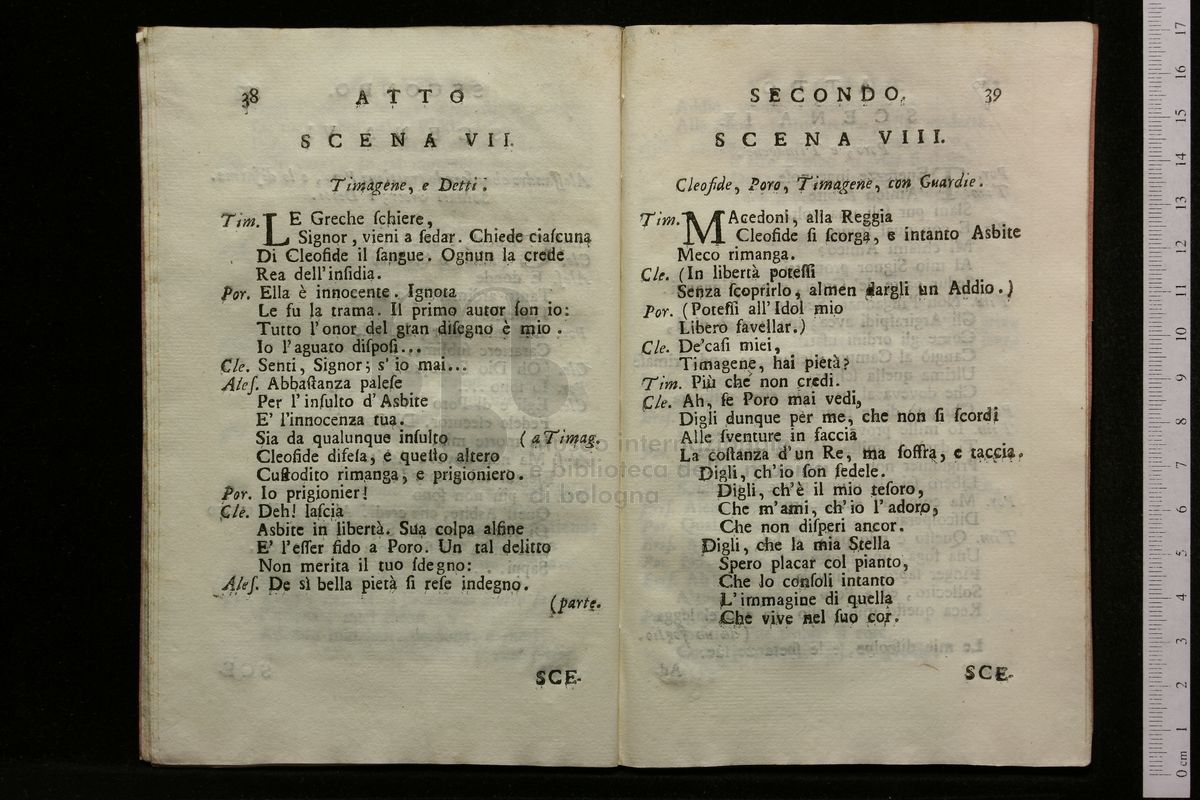 38 ATTO
SCENA VII.
Timagene, e Detti.
Tim. LE Greche ſchiere,
Signor, vieni a ſedar. Chiede ciaſcuna
Di Cleofide il ſangue. Ognun la crede
Rea dell'inſidia.
Por. Ella è innocente. Ignota
Le fu la trama. Il primo autor ſon io:
Tutto l'onor del gran diſegno è mio.
Io l'aguato diſpoſi...
Cle. Senti, Signor; s'io mai...
Aleſ. Abbaſtanza paleſe
Per l'inſulto d'Asbite
E' l'innocenza tua.
Sia da qualunque inſulto (a Timag.
Cleofide difeſa, e queſto altero
Cuſtodito rimanga, e prigioniero.
Por. Io prigionier!
Cle. Deh! laſcia
Asbite in libertà. Sua colpa alfine
E' l'eſſer fido a Poro. Un tal delitto
Non merita il tuo ſdegno:
Aleſ. De sì bella pietà ſi reſe indegno.
(parte.
SCE-
SECONDO. 39
SCENA VIII.
Cleofide, Poro, Timagene, con Guardie.
Tim. MAcedoni, alla Reggia
Cleofide ſi ſcorga, e intanto Asbite
Meco rimanga.
Cle. (In libertà poteſſi
Senza ſcoprirlo, almen dargli un Addio.)
Por. (Poteſſi all'Idol mio
Libero favellar.)
Cle. De'caſi miei,
Timagene, hai pietà?
Tim. Più che non credi.
Cle. Ah, ſe Poro mai vedi,
Digli dunque per me, che non ſi ſcordi
Alle ſventure in faccia
La coſtanza d'un Re, ma ſoffra, e taccia.
Digli, ch'io ſon fedele.
Digli, ch'è il mio teſoro,
Che m'ami, ch'io l'adoro,
Che non diſperi ancor.
Digli, che la mia Stella
Spero placar col pianto,
Che lo conſoli intanto
L'immagine di quella
Che vive nel ſuo cor.
SCE-